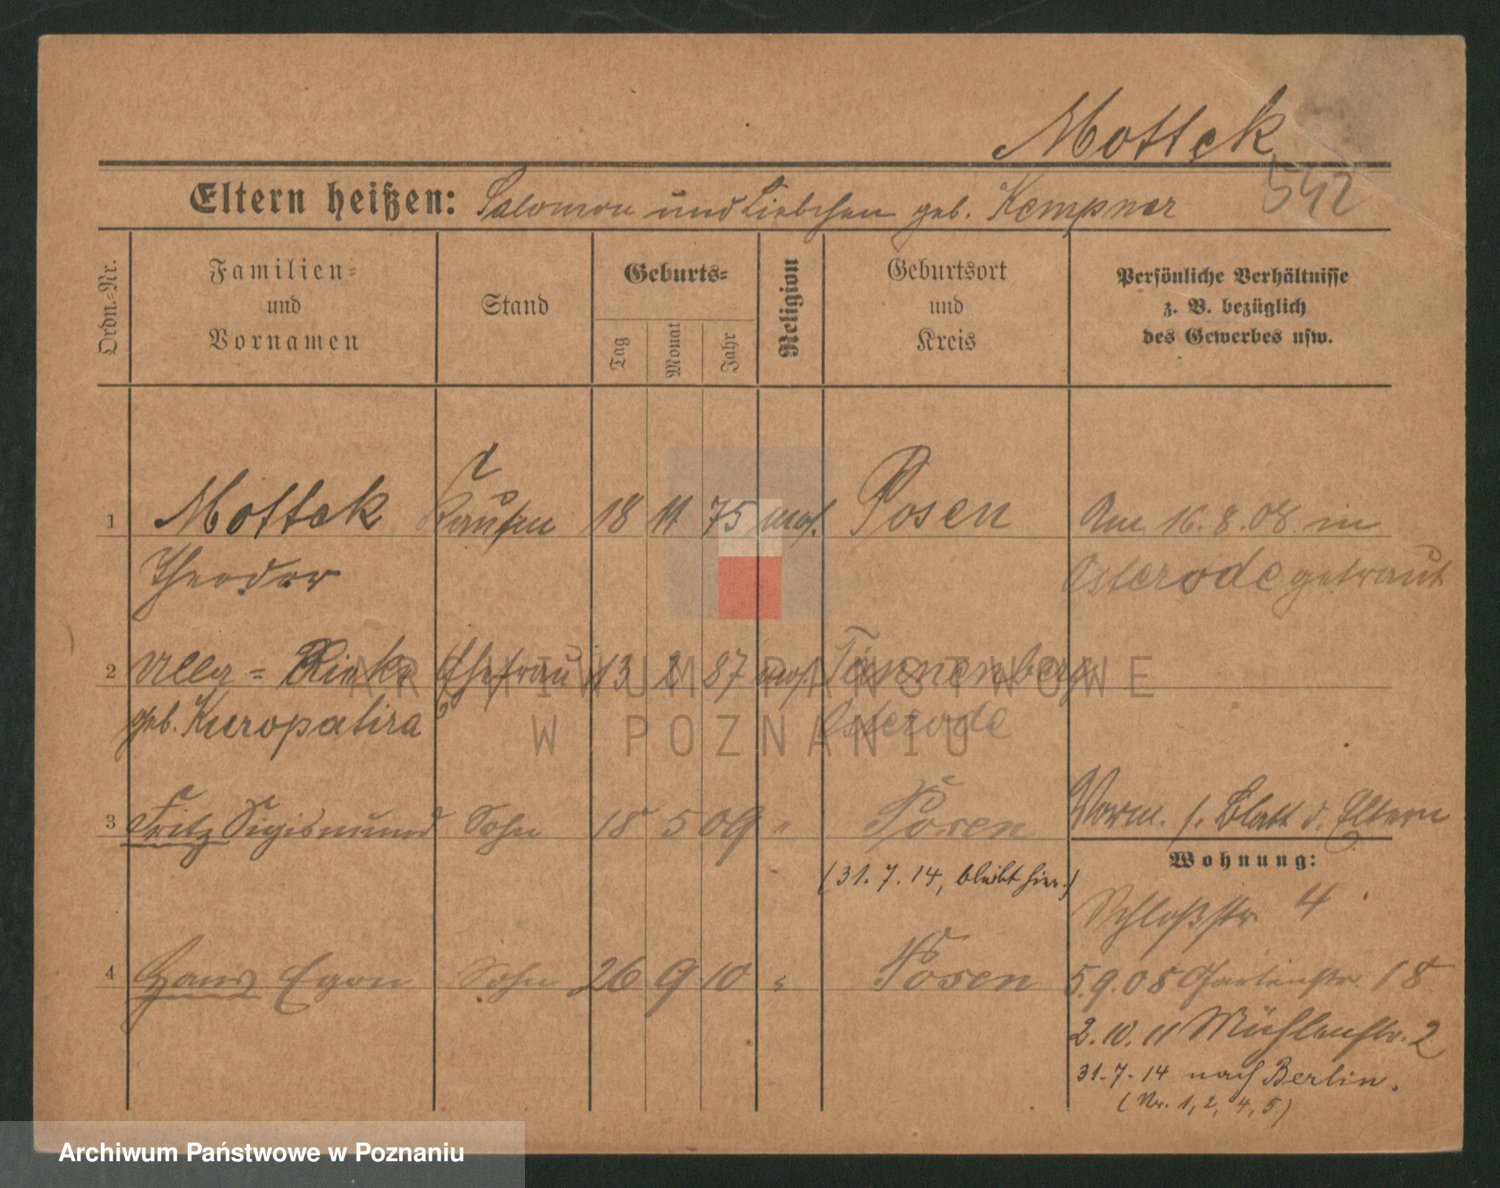 Mottek
542
Eltern heißen: Salomon und Liebchen geb. Kempner
Ordn.-Nr.
Familien-
und
Vornamen
Stand
Geburts-
Tag
Monat
Jahr
Religion
Geburtsort
und
Kreis
Persönliche Verhältnisse
z. B. bezüglich
des Gewerbes usw.
1 Mottek Kaufm 18 11 75 mos. Posen Am 16.8.08. in
Theodor Osterode getraut
2 Ella = Ehefrau 13 2 87 mos. Tannenberg
geb. Osterode
3 Fritz Sigismund Sohn 18 5 09 " Posen Vorm. s. Blatt d. Eltern
(31.7.14, bleibt hier.)
Wohnung:
Schloßstr 4
4 Hans Egon Sohn 26 9 10 " Posen
5.9.08 Gartenstr. 18
2.10.11 Mühlenstr. 2
31.7.14 nach Berlin.
(Nr. 1, 2, 4, 5)
ARCHIWUM PAŃSTWOWE
W POZNANIU
Archiwum Państwowe w Poznaniu